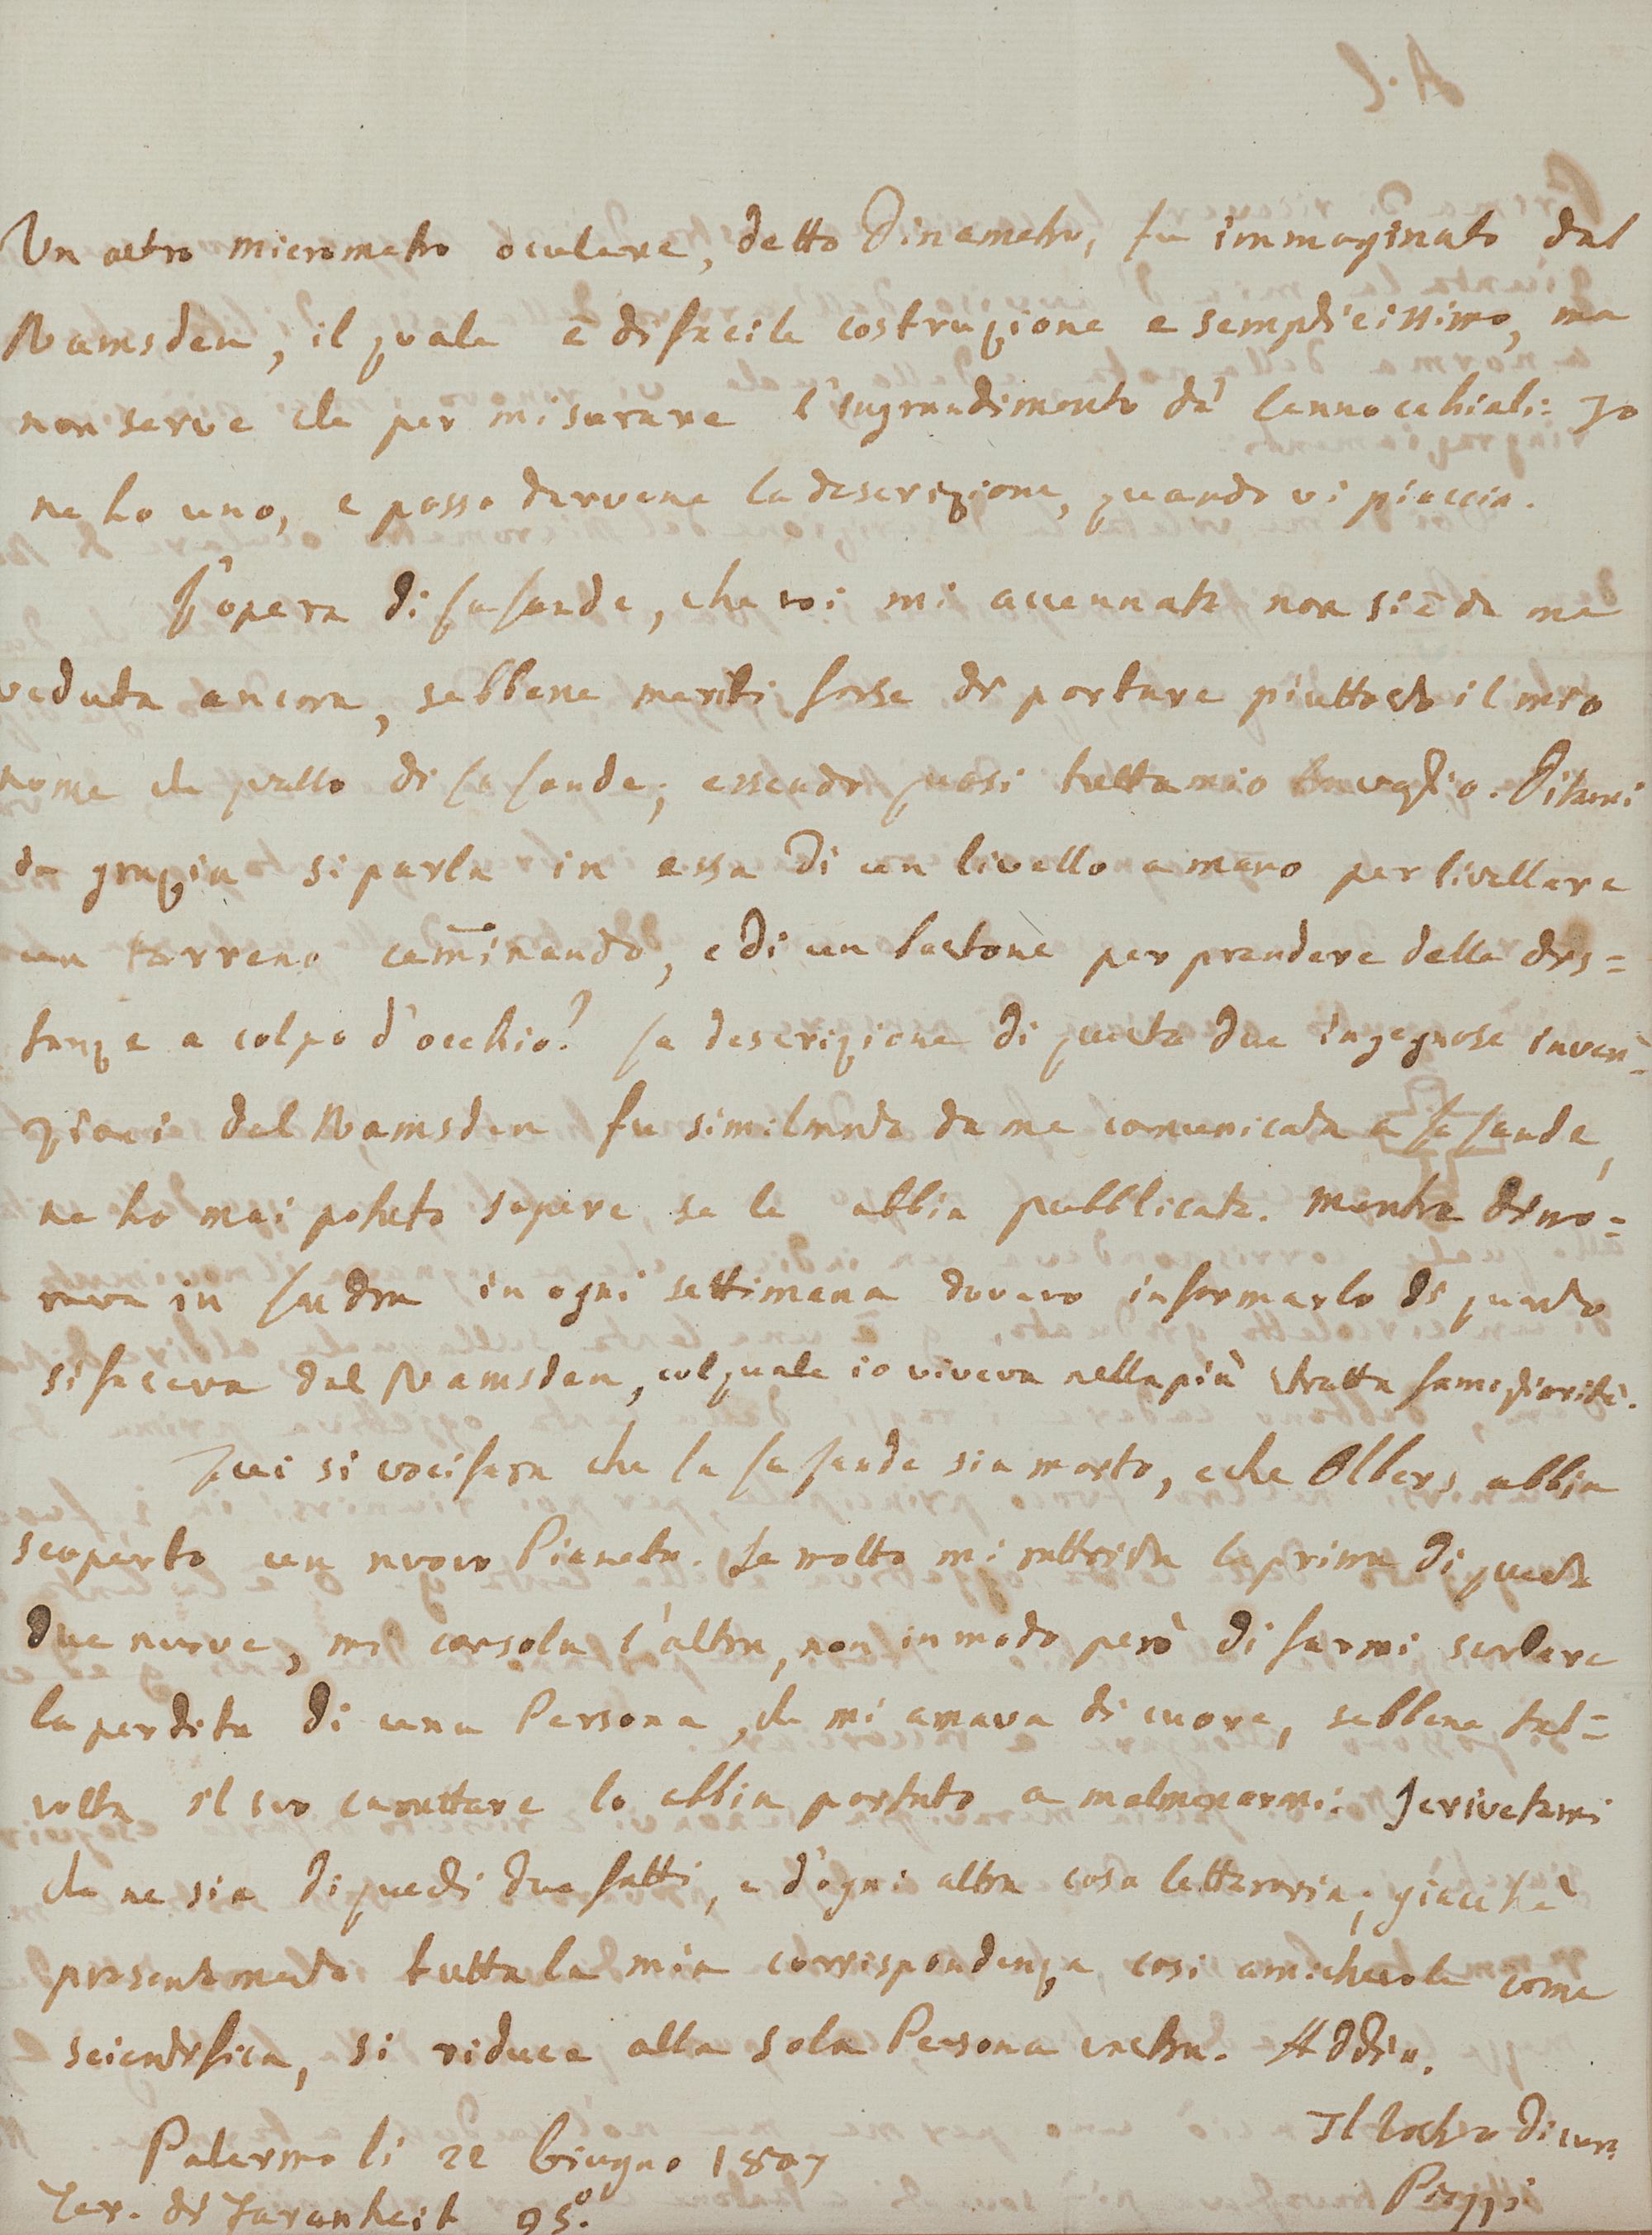 Un altro micrometro oculare, detto Dinametro, fu immaginato dal
Ramsden, il quale è di facile costruzione e semplicissimo, ma
non serve che per misurare l'ingrandimento de' Cannocchiali: Io
ne ho uno, e posso darvene la descrizione, quando vi piaccia.
L'opera di La Lande, che voi mi accennate non si è da me
veduta ancora, sebbene meriti forse di portare piuttosto il mio
nome che quello di La Lande, essendo quasi tutta mio travaglio. Ditemi
di grazia si parla in essa di un livello a mano per livellare
un terreno caminando, e di un bastone per prendere delle dis=
tanze a colpo d'occhio? La descrizione di queste due ingegnose inven=
zioni del Ramsden fu similmente da me comunicata a La Lande,
ne ho mai potuto sapere, se le abbia pubblicate. Mentre dimo=
rava in Londra in ogni settimana doveva informarlo di quanto
si faceva dal Ramsden, col quale io viveva nella più stretta famigliarità.
Qui si vocifera che La Lande sia morto, e che Olbers abbia
scoperto un nuovo Pianeta. Se molto mi rattrista la prima di queste
due nuove, mi consola l'altra, non in modo però di farmi scordare
la perdita di una Persona, che mi amava di cuore, sebbene tal=
volta il suo carattere lo abbia portato a malmenarmi: Scrivetemi
che ne sia di questi due fatti, e d'ogni altra cosa letteraria; giacchè
presentemente tutta la mia corrispondenza, così amichevole come
scientifica, si riduce alla sola Persona vostra. Addio.
Il vostro di cuore
Palermo li 22 Giugno 1807
Piazzi
Ter. di Faranheit 95°.